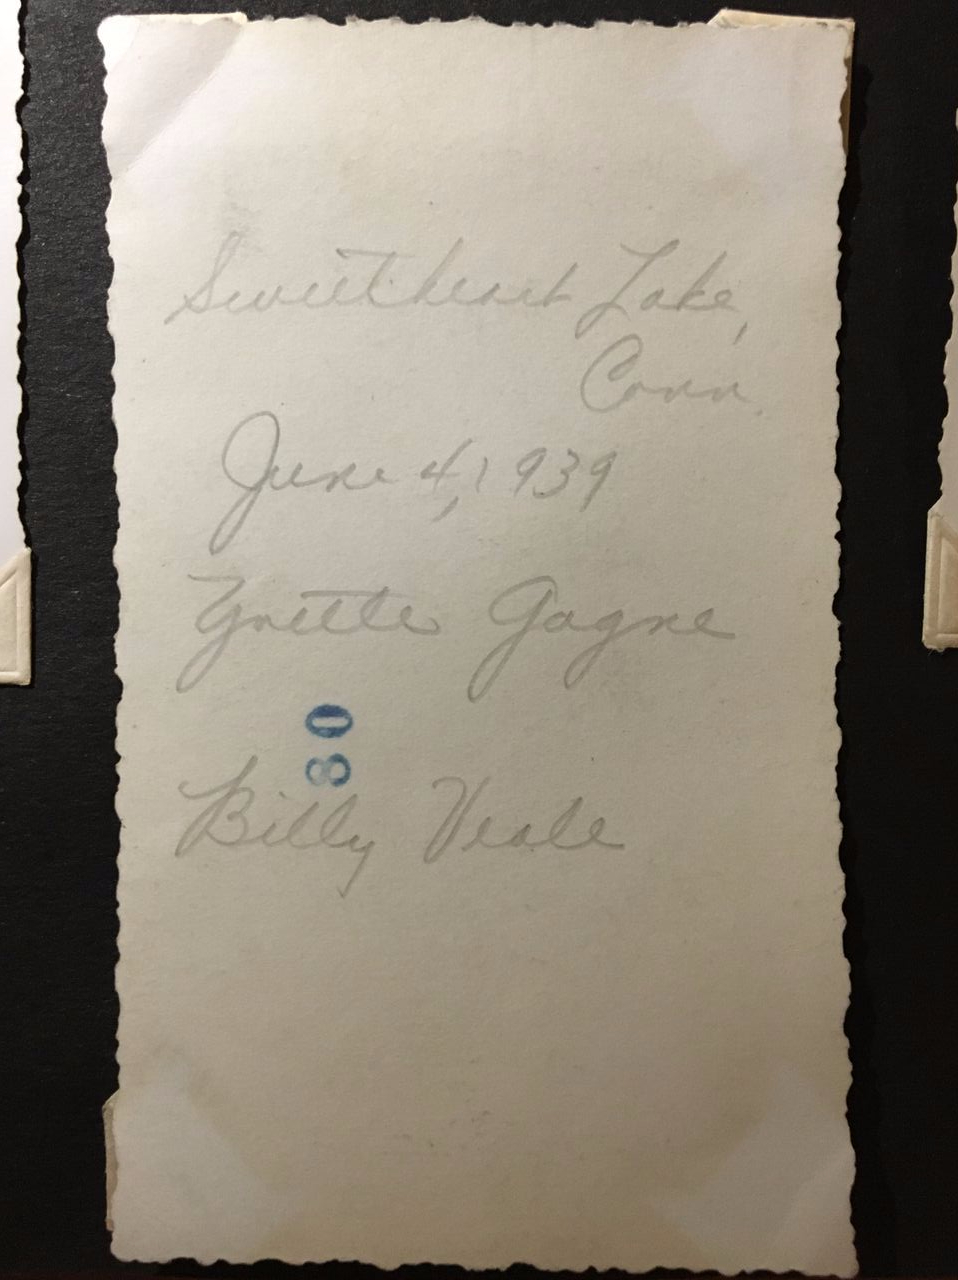 Sweetheart Lake,
Conn.
June 4, 1939
Yvette Gagne
80
Billy Veale